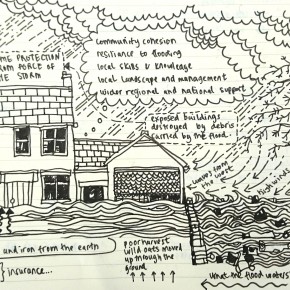 community cohesion
resiliance to flooding
local skills & knowledge
local landscape and management
wider regional and national support
ME PROTECTION
FROM FORCE OF
THE STORM
exposed buildings
destroyed by debris
carried by the flood.
waves from
the west
high winds
und iron from the earth
} insurance...
poor harvest
wild oats moved
up through the
ground
what the flood waters